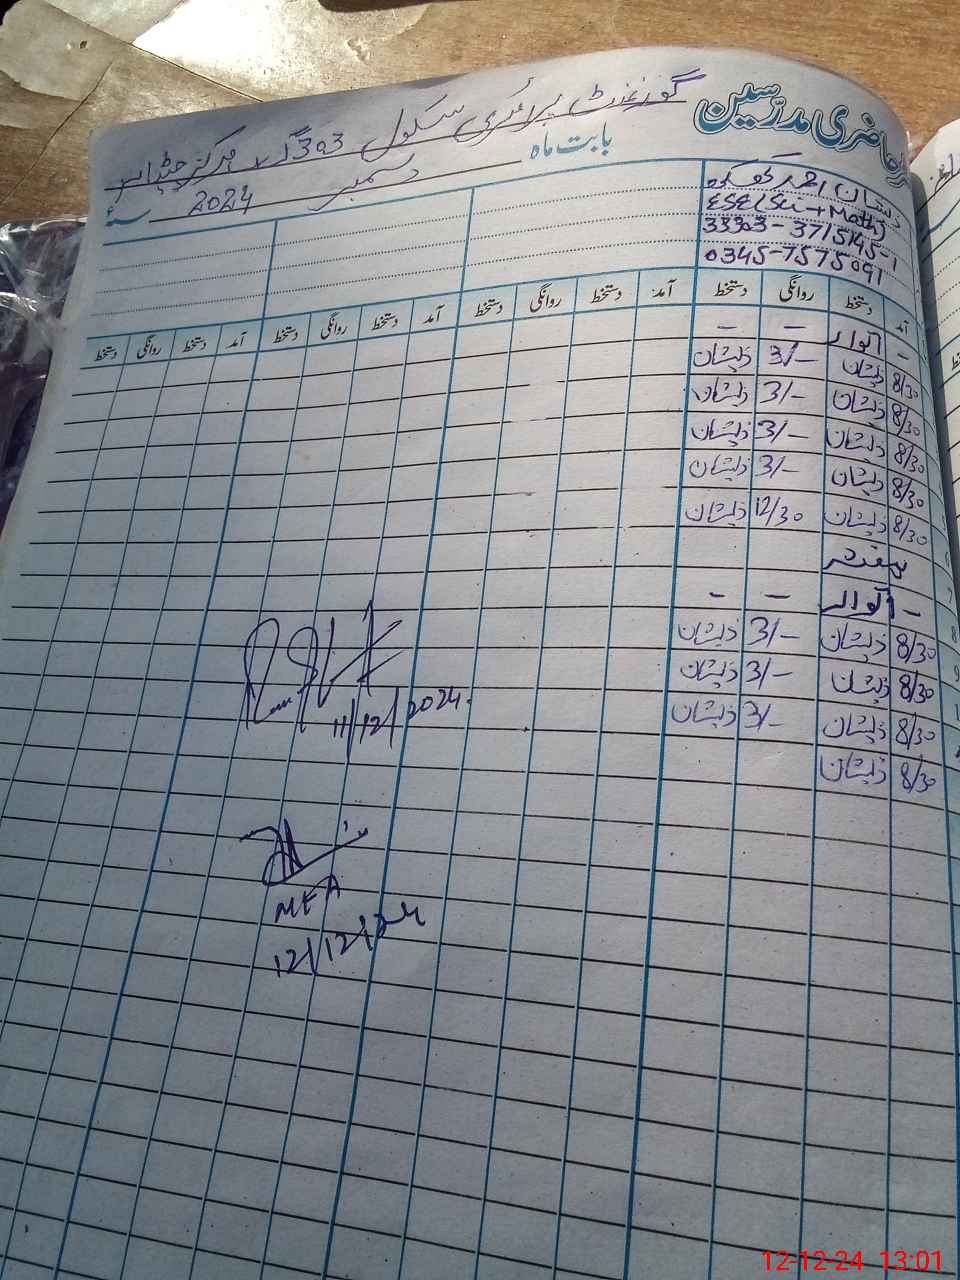 حاضری مدرّسین
گورنمنٹ پرائمری سکول 303 گ ب مرکز
بابت ماہ دسمبر 2024 سنہء
ذیشان احمد کھوکھر
ESE (Sci + Math)
33303-3715145-1
0345-7575091
آمد دستخط روانگی دستخط آمد دستخط روانگی دستخط آمد دستخط روانگی دستخط آمد دستخط روانگی دستخط
- اتوار - -
8/30 ذیشان 3/- ذیشان
8/30 ذیشان 3/- ذیشان
8/30 ذیشان 3/- ذیشان
8/30 ذیشان 3/- ذیشان
8/30 ذیشان 12/30 ذیشان
ہفتہ
- اتوار - -
8/30 ذیشان 3/- ذیشان
8/30 ذیشان 3/- ذیشان
8/30 ذیشان 3/- ذیشان
8/30 ذیشان
11/12/2024.
MEA
12/12/24
12-12-24 13:01